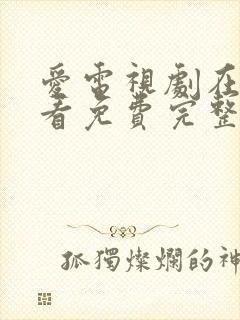 愛雷視劇在
看免費完整
孤獨燦爛的神